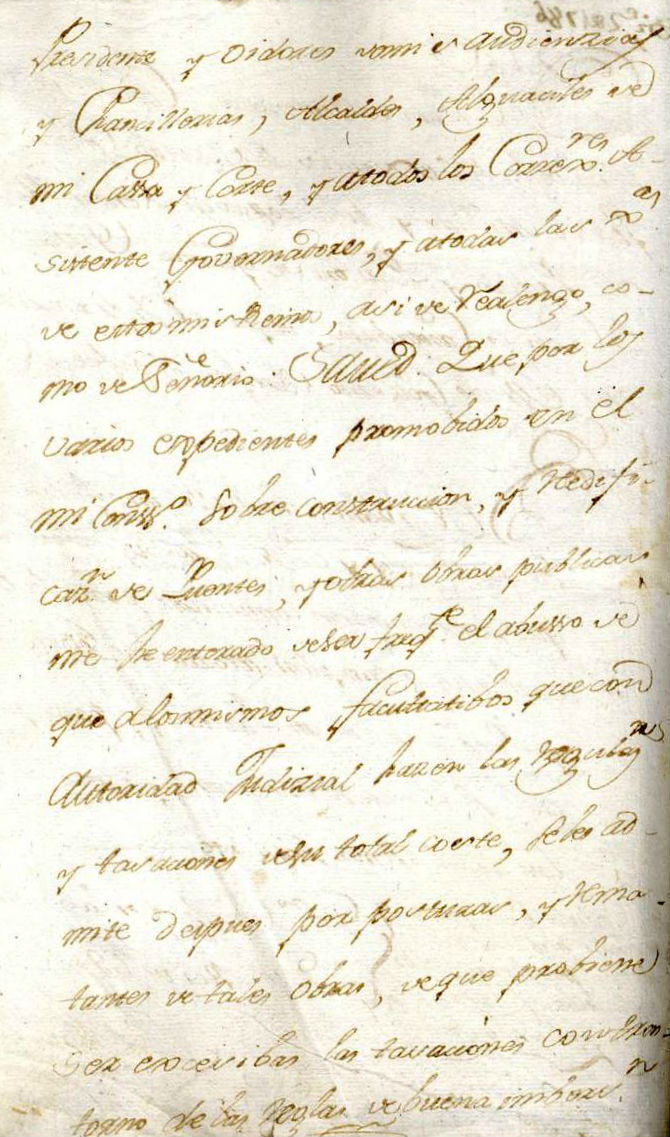 Presidente y Oidores de mis Audienzias
y Chancillerias, Alcaldes, Alguaciles de
mi Cassa y Corte, y atodos los Correxres. A-
sistente Governadores, y atodas las
de estos mis Reinos, asi de realengo, co-
mo de Señorio. Saved Que por los
varios expedientes promobidos en el
mi Conss.o Sobre construccion, y redifi-
cazn. de Puentes, y otras obras publicas
me he enterado de ser freqte. el abusso de
que a los mismos facultatibos que con
Autoridad Judizial hazen las regulans
y tasaciones de su total coste, se les ad-
mite despues por posturas, y rema-
tantes de tales obras, de que probiene
ser excesibas las tasaciones con tras-
torno de las reglas de buena